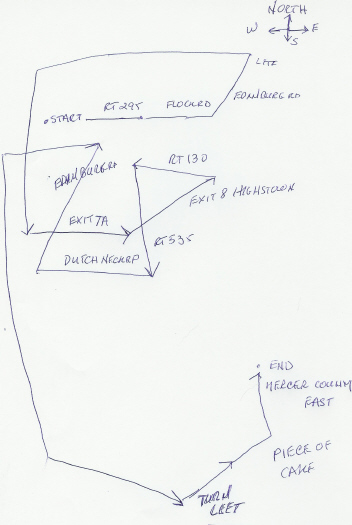 NORTH
W E
S
LATE
START RT 295 FLOCK RD EDINBURG RD
EDINBURG RD RT 130
EXIT 8 HIGHSTOWN
EXIT 7A
RT 535
DUTCH NECK RD
END
MERCER COUNTY
EAST
PIECE OF
CAKE
TURN
LEFT